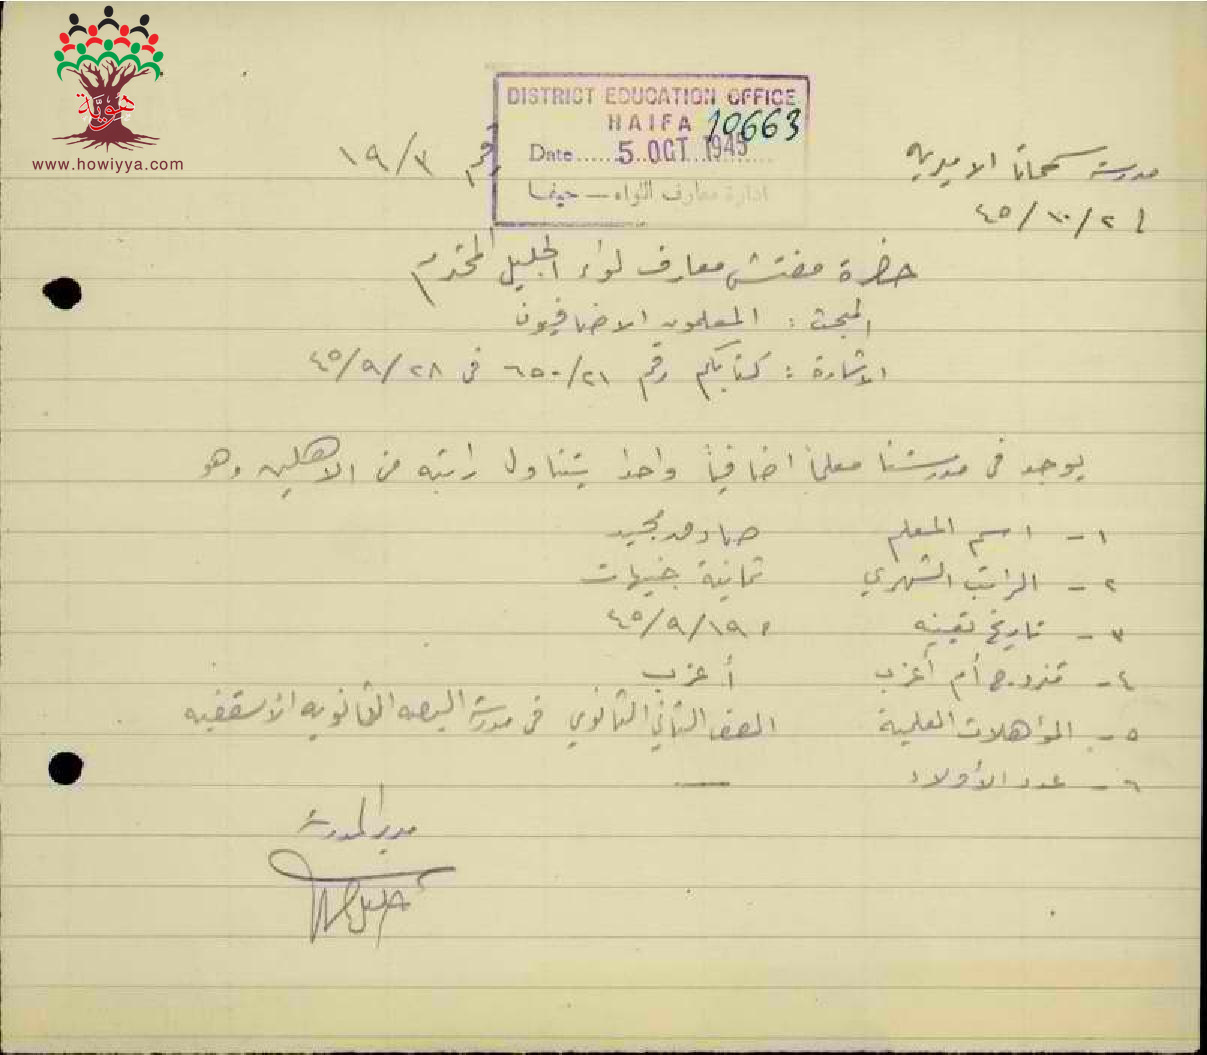 هويّة
www.howiyya.com
DISTRICT EDUCATION OFFICE
HAIFA 10663
Date...... 5 OCT 1945
ادارة معارف اللواء — حيفا
مدرسة سحماتا الاميرية
رقم ٣/١٩
٢/١٠/٤٥
حضرة مفتش معارف لواء الجليل المحترم
المبحث : المعلمون الاضافيون
الاشارة : كتابكم رقم ٢١/٦٥٠ في ٢٨/٩/٤٥
يوجد في مدرستنا معلماً اضافياً واحداً يتناول راتبه من الاهلين وهو
١ - اسم المعلم مجيد
٢ - الراتب الشهري ثمانية جنيهات
٣ - تاريخ تعيينه ١٩/٩/٤٥
٤ - متزوج أم أعزب أعزب
٥ - المؤهلات العلمية الصف الثاني الثانوي في مدرسة البصه الثانويه الاسقفيه
٦ - عدد الأولاد —
مدير المدرسة